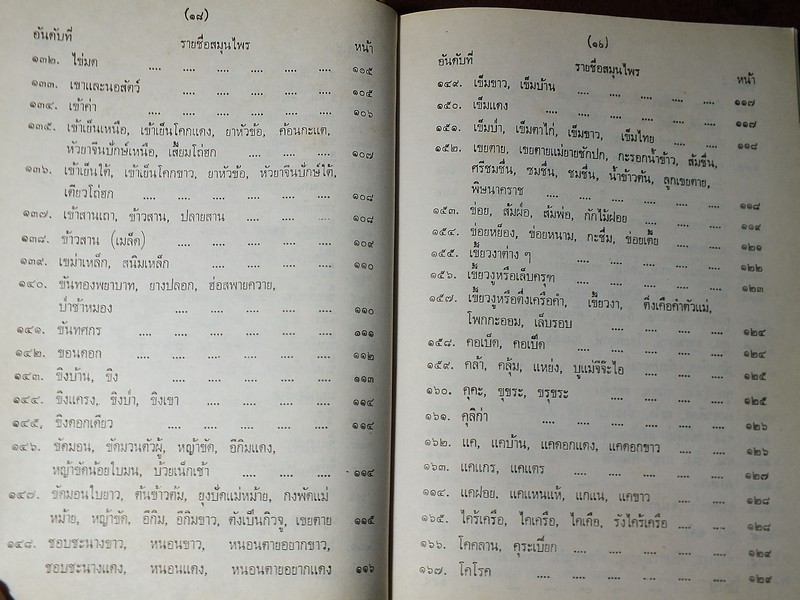 (๑๘)
อันดับที่ รายชื่อสมุนไพร หน้า
๑๓๒. ไข่มด .... .... .... .... .... ๑๐๕
๑๓๓. เขาและนอสัตว์ .... .... .... .... ๑๐๕
๑๓๔. เข้าค่า .... .... .... .... .... ๑๐๖
๑๓๕. เข้าเย็นเหนือ, เข้าเย็นโคกแดง, ยาหัวข้อ, ค้อนกะแต,
หัวยาจีนปักษ์เหนือ, เสี้ยมโถ่ฮก .... .... .... ๑๐๗
๑๓๖. เข้าเย็นใต้, เข้าเย็นโคกขาว, ยาหัวข้อ, หัวยาจีนปักษ์ใต้,
เตียวโถ่ฮก .... .... .... .... .... ๑๐๘
๑๓๗. เข้าสานเถา, ข้าวสาน, ปลายสาน .... .... .... ๑๐๘
๑๓๘. ข้าวสาน (เมล็ด) .... .... .... .... ๑๐๙
๑๓๙. เขม่าเหล็ก, สนิมเหล็ก .... .... .... .... ๑๑๐
๑๔๐. ขันทองพยาบาท, ยางปลอก, ฮ่อสพายควาย,
ป่าช้าหมอง .... .... .... .... .... ๑๑๐
๑๔๑. ขันทศกร .... .... .... .... .... ๑๑๑
๑๔๒. ขอนดอก .... .... .... .... .... ๑๑๒
๑๔๓. ขิงบ้าน, ขิง .... .... .... .... ๑๑๓
๑๔๔. ขิงแครง, ขิงป่า, ขิงเขา .... .... .... .... ๑๑๔
๑๔๕. ขิงดอกเดียว .... .... .... .... .... ๑๑๔
๑๔๖. ขัดมอน, ขัดมวนตัวผู้, หญ้าขัด, อีกิมแดง,
หญ้าขัดน้อยใบมน, บ้วยเน็กเช้า .... .... .... ๑๑๔
๑๔๗. ขัดมอนใบยาว, ต้นข้าวต้ม, ยุงปัดแม่หม้าย, กงพัดแม่
หม้าย, หญ้าขัด, อีกิม, อีกิมขาว, ตังเป็นกิวจู, เขยตาย ๑๑๕
๑๔๘. ชอบชะนางขาว, หนอนขาว, หนอนตายอยากขาว,
ชอบชะนางแดง, หนอนแดง, หนอนตายอยากแดง ๑๑๖
(๑๖)
อันดับที่ รายชื่อสมุนไพร หน้า
๑๔๙. เข็มขาว, เข็มบ้าน .... .... .... .... ๑๑๗
๑๕๐. เข็มแดง .... .... .... .... .... ๑๑๗
๑๕๑. เข็มป่า, เข็มตาไก่, เข็มขาว, เข็มไทย .... .... ๑๑๘
๑๕๒. เขยตาย, เขยตายแม่ยายชักปก, กะรอกน้ำข้าว, ส้มชื่น,
ศรีชมชื่น, ชมชื่น, ชมชื่น, น้ำข้าวต้น, ลูกเขยตาย,
พิษนาคราช .... .... .... .... .... ๑๑๘
๑๕๓. ข่อย, ส้มผ่อ, ส้มพ่อ, กักไม้ฝอย .... .... .... ๑๑๙
๑๕๔. ข่อยหย็อง, ข่อยหนาม, กะชึ่ม, ข่อยเตี้ย .... .... ๑๒๑
๑๕๕. เขี้ยวงาต่าง ๆ .... .... .... .... ๑๒๒
๑๕๖. เขี้ยวงูหรือเล็บครุฑ .... .... .... .... ๑๒๓
๑๕๗. เขี้ยวงูหรือตึ่งเครือคำ, เขี้ยวงา, ตึ่งเคือคำตัวแม่,
โพกกะออม, เล็บรอบ .... .... .... .... ๑๒๔
๑๕๘. คอเบ็ด, คอเป็ด .... .... .... .... ๑๒๔
๑๕๙. คล้า, คลุ้ม, แหย่ง, บูแม่จีจ๊ะไอ .... .... .... ๑๒๕
๑๖๐. คุคะ, ขุขระ, ขรุขระ .... .... .... .... ๑๒๕
๑๖๑. คุลิก่า .... .... .... .... .... ๑๒๖
๑๖๒. แค, แคบ้าน, แคดอกแดง, แคดอกขาว .... .... ๑๒๖
๑๖๓. แคแกร, แคแตร .... .... .... .... ๑๒๗
๑๑๔. แคฝอย, แคแหนแห้, แกแน, แคขาว .... .... ๑๒๘
๑๖๕. ไคร้เครือ, ไคเครือ, ไคเคือ, รังไคร้เครือ .... .... ๑๒๘
๑๖๖. โคคลาน, คุระเบียก .... .... .... .... ๑๒๙
๑๖๗. โคโรค .... .... .... .... .... ๑๒๙